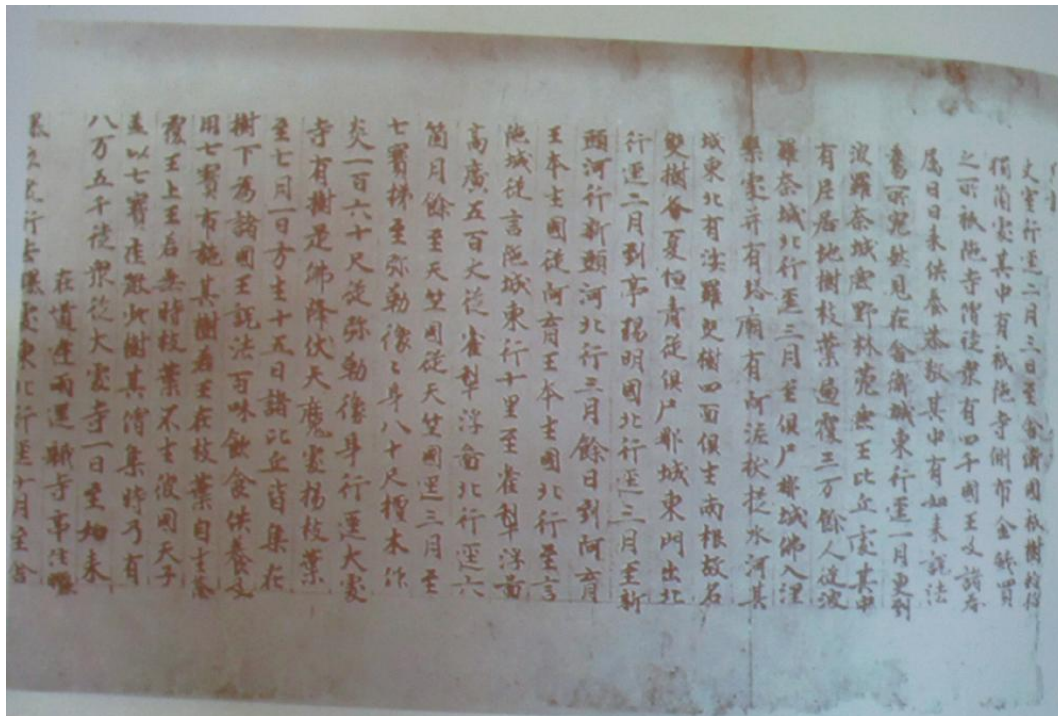 丈室行逕二月三日至舍衛國祇樹給
獨薗家其中有祇陁寺側布金錢買
之所祇陁寺僧徒衆有四千國王及諸眷
属日日来供養恭敬其中有如来說法
舊所宛然見在舍衛城東行逕一月更到
波羅奈城鹿野林菀無王比丘處其中
有尼居地樹枝葉遍覆三万餘人從波
羅奈城北行逕三月至俱尸郍城佛入涅
槃處并有塔廟有阿泥秡提水河其
城東北有娑羅雙樹四面俱生南根故名
雙樹春夏恒青從俱尸郍城東門出北
行逕二月到亭揚明國北行逕三月至新
頭河行新頭河北行三月餘日到阿育
王本生國從阿育王本生國北行至言
陁城從言陁城東行十里至雀犁浮啚
高廣五百丈從雀犁浮啚北行逕六
箇月餘至天竺國從天竺國逕三月至
七寶梯至弥勒像〻身八十尺檀木作
炎一百六十尺從弥勒像身行逕大家
寺有樹是佛降伏天魔處揚枝葉
至七月一日方生十五日諸比丘皆集在
樹下為諸國王說法百味飲食供養又
用七寶布施其樹若王在枝葉自生蓋
覆王上王若無時枝葉不生彼國天子
並以七寶庄嚴此樹其僧集時乃有
八万五千徒衆從大家寺一日至如来
在道逢雨還祇寺事
處東北行逕十月至舍